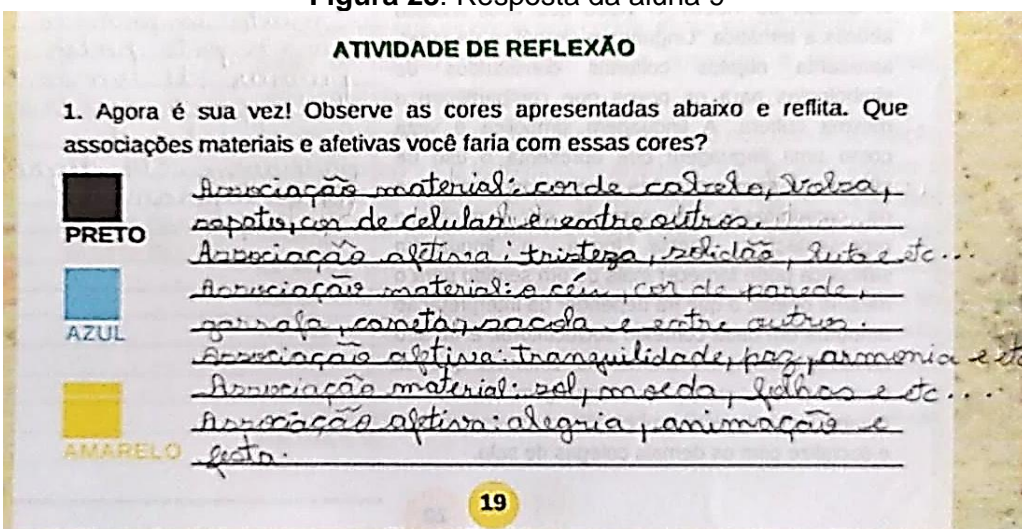 Figura 23. Resposta da aluna 5
ATIVIDADE DE REFLEXÃO
1. Agora é sua vez! Observe as cores apresentadas abaixo e reflita. Que
associações materiais e afetivas você faria com essas cores?
PRETO
Associação material: cor de cabelo, bolsa,
sapato, cor de celular e entre outros.
Associação afetiva: tristeza, solidão, luto e etc...
AZUL
Associação material: o céu, cor de parede,
garrafa, caneta, sacola e entre outros.
Associação afetiva: tranquilidade, paz, armonia e etc
AMARELO
Associação material: sol, moeda, folhas e etc...
Associação afetiva: alegria, animação e
festa.
19